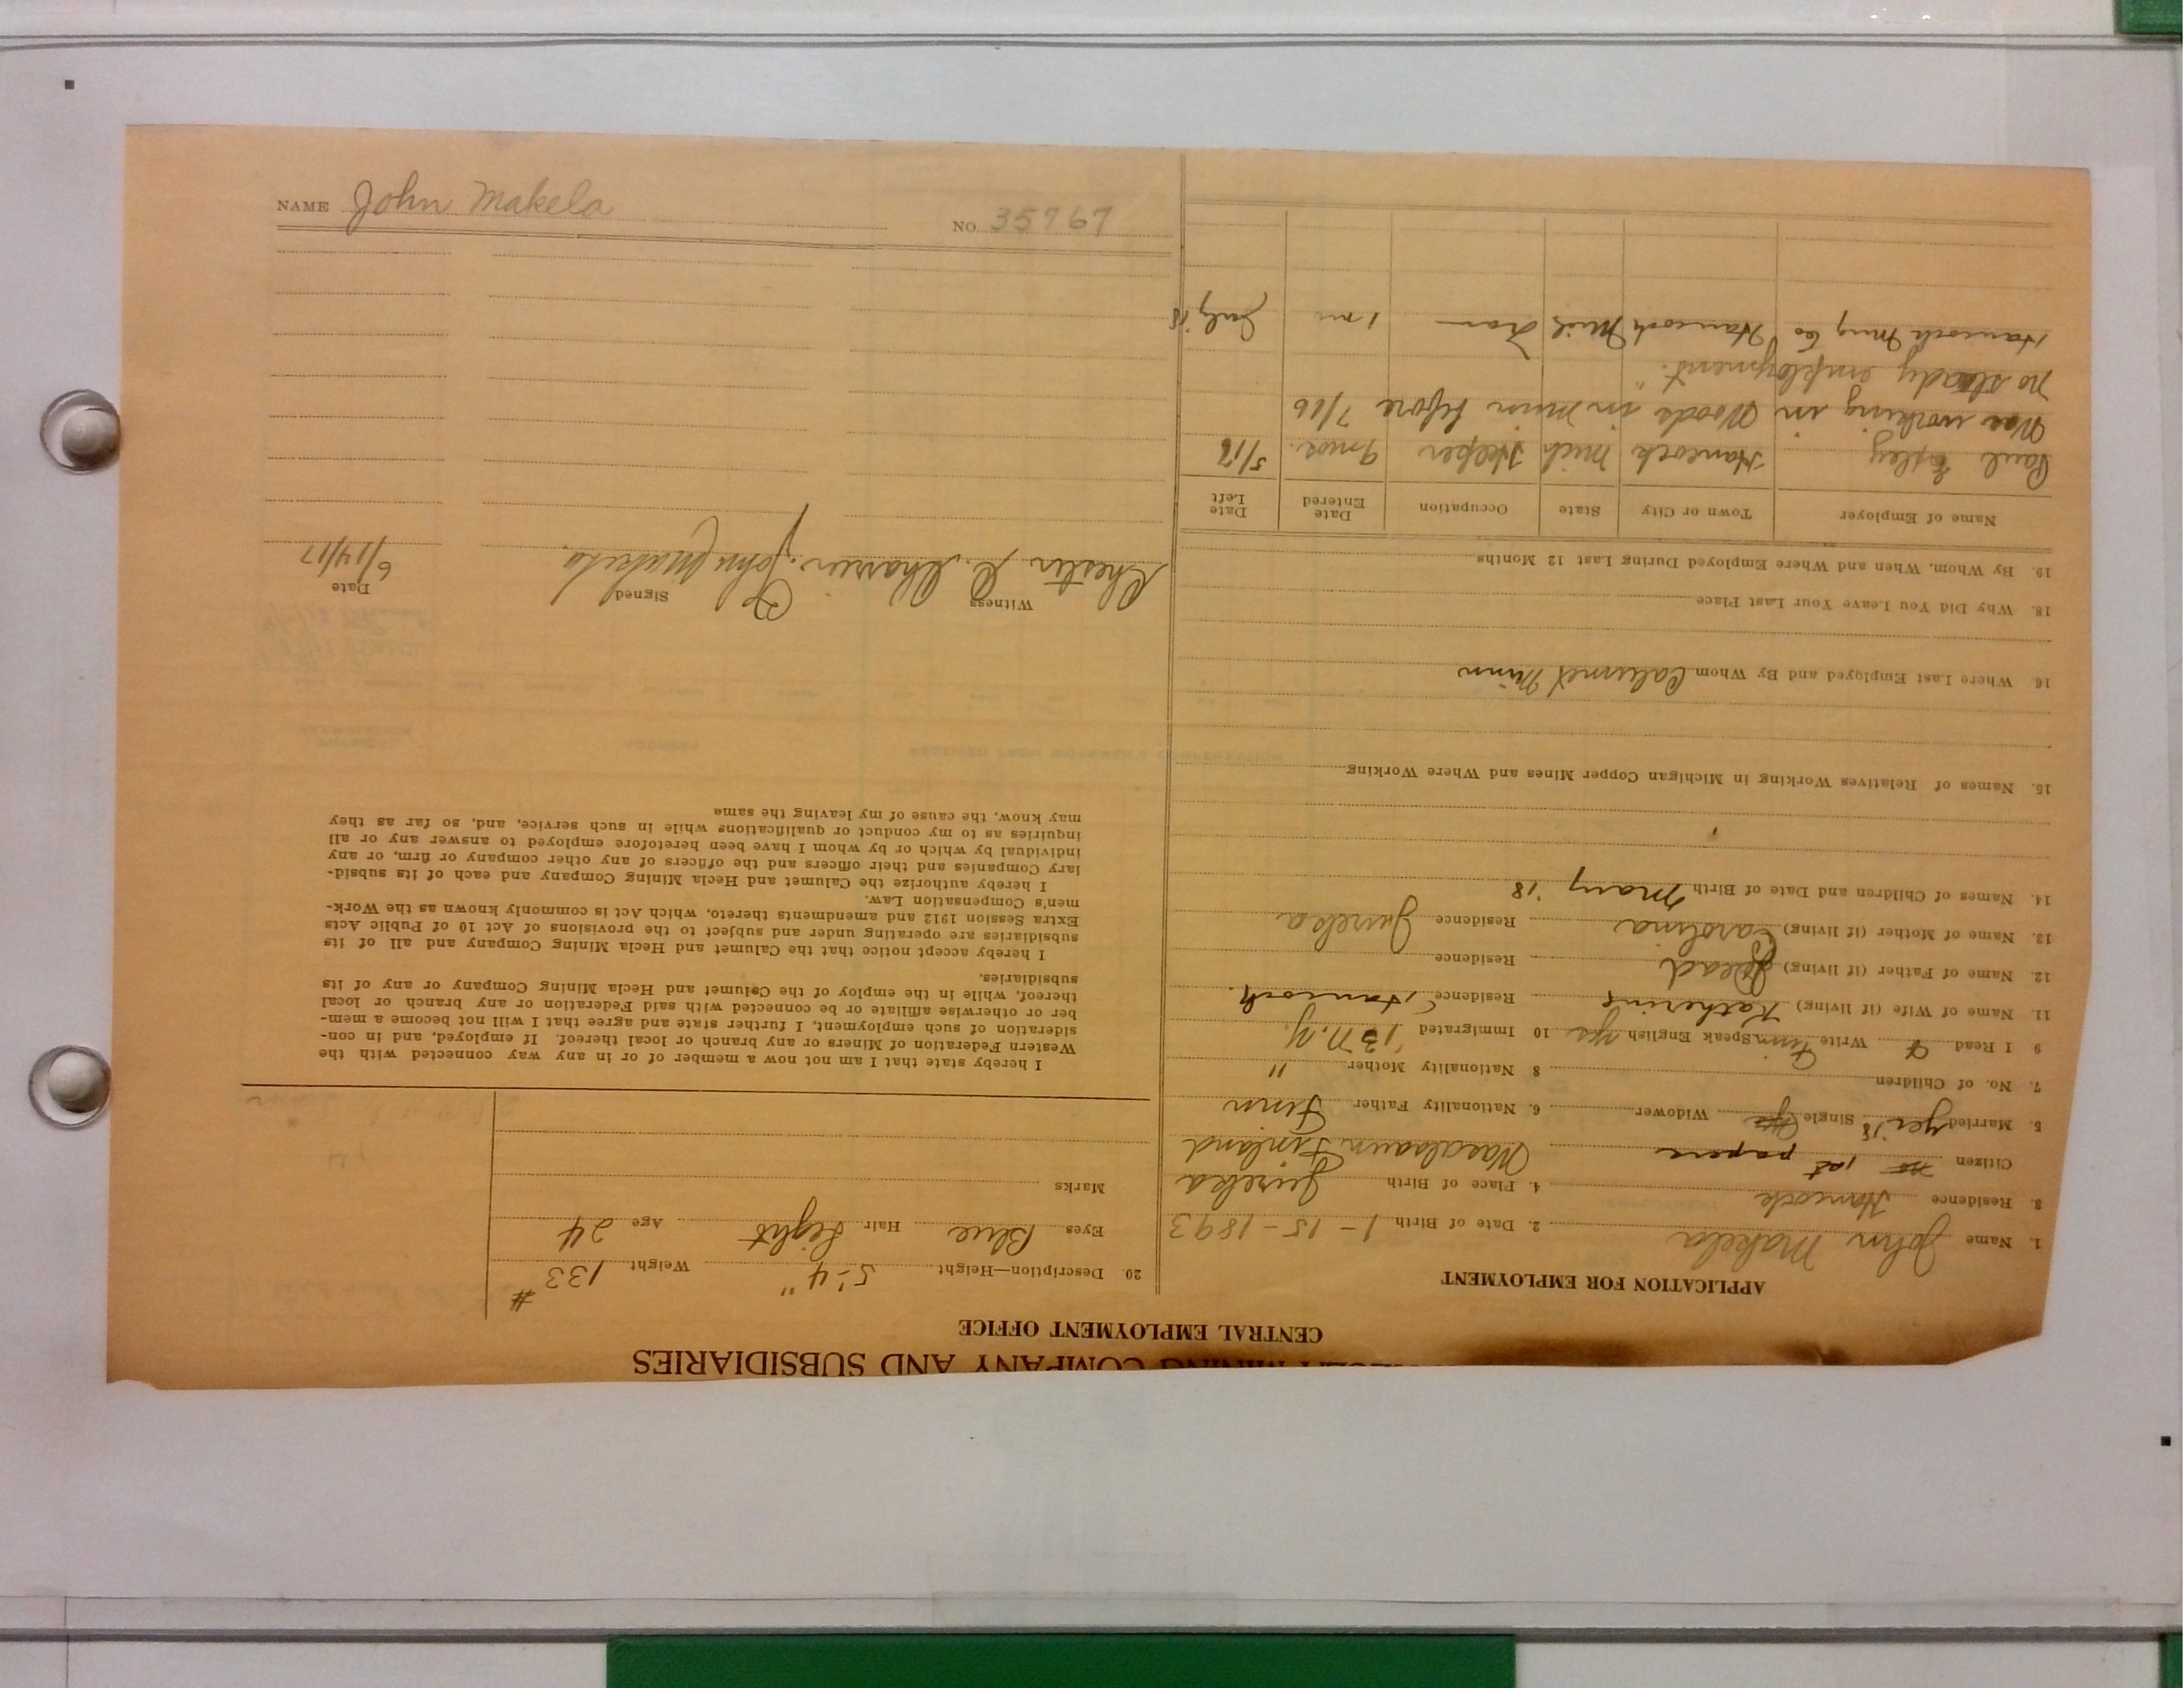 MINING COMPANY AND SUBSIDIARIES
CENTRAL EMPLOYMENT OFFICE
APPLICATION FOR EMPLOYMENT
1. Name John Makela 2. Date of Birth 1-15-1893
3. Residence Hancock 4. Place of Birth Jureka
Citizen no 1st papers Finland
5. Married yes '18 Single yes Widower 6. Nationality Father Finn
7. No. of Children 8 Nationality Mother "
9 I Read Write Finn Speak English yes 10 Immigrated '13 N.Y.
11. Name of Wife (if living) Katherine Residence Hancock
12. Name of Father (if living) Dead Residence
13. Name of Mother (if living) Carolina Residence Jureka
14. Names of Children and Date of Birth Mary '18
15. Names of Relatives Working in Michigan Copper Mines and Where Working
16. Where Last Employed and By Whom Calumet Minn
18. Why Did You Leave Your Last Place
19. By Whom, When and Where Employed During Last 12 Months
Name of Employer Town or City State Occupation Date Entered Date Left
Paul Hancock Mich Helper 9 mos. 5/17
Was working in Woods in Minn before 7/16
no steady employment.
Hancock Mng Co Hancock Mich Tram 1 m July '18
20. Description—Height 5'-4" Weight 133 #
Eyes Blue Hair Light Age 24
Marks
I hereby state that I am not now a member of or in any way connected with the
Western Federation of Miners or any branch or local thereof. If employed, and in con-
sideration of such employment, I further state and agree that I will not become a mem-
ber or otherwise affiliate or be connected with said Federation or any branch or local
thereof, while in the employ of the Calumet and Hecla Mining Company or any of its
subsidiaries.
I hereby accept notice that the Calumet and Hecla Mining Company and all of its
subsidiaries are operating under and subject to the provisions of Act 10 of Public Acts
Extra Session 1912 and amendments thereto, which Act is commonly known as the Work-
men's Compensation Law.
I hereby authorize the Calumet and Hecla Mining Company and each of its subsid-
iary Companies and their officers and the officers of any other company or firm, or any
individual by which or by whom I have been heretofore employed to answer any or all
inquiries as to my conduct or qualifications while in such service, and, so far as they
may know, the cause of my leaving the same
Witness Signed Date
Chester John Makela 6/14/17
NAME John Makela NO. 35767